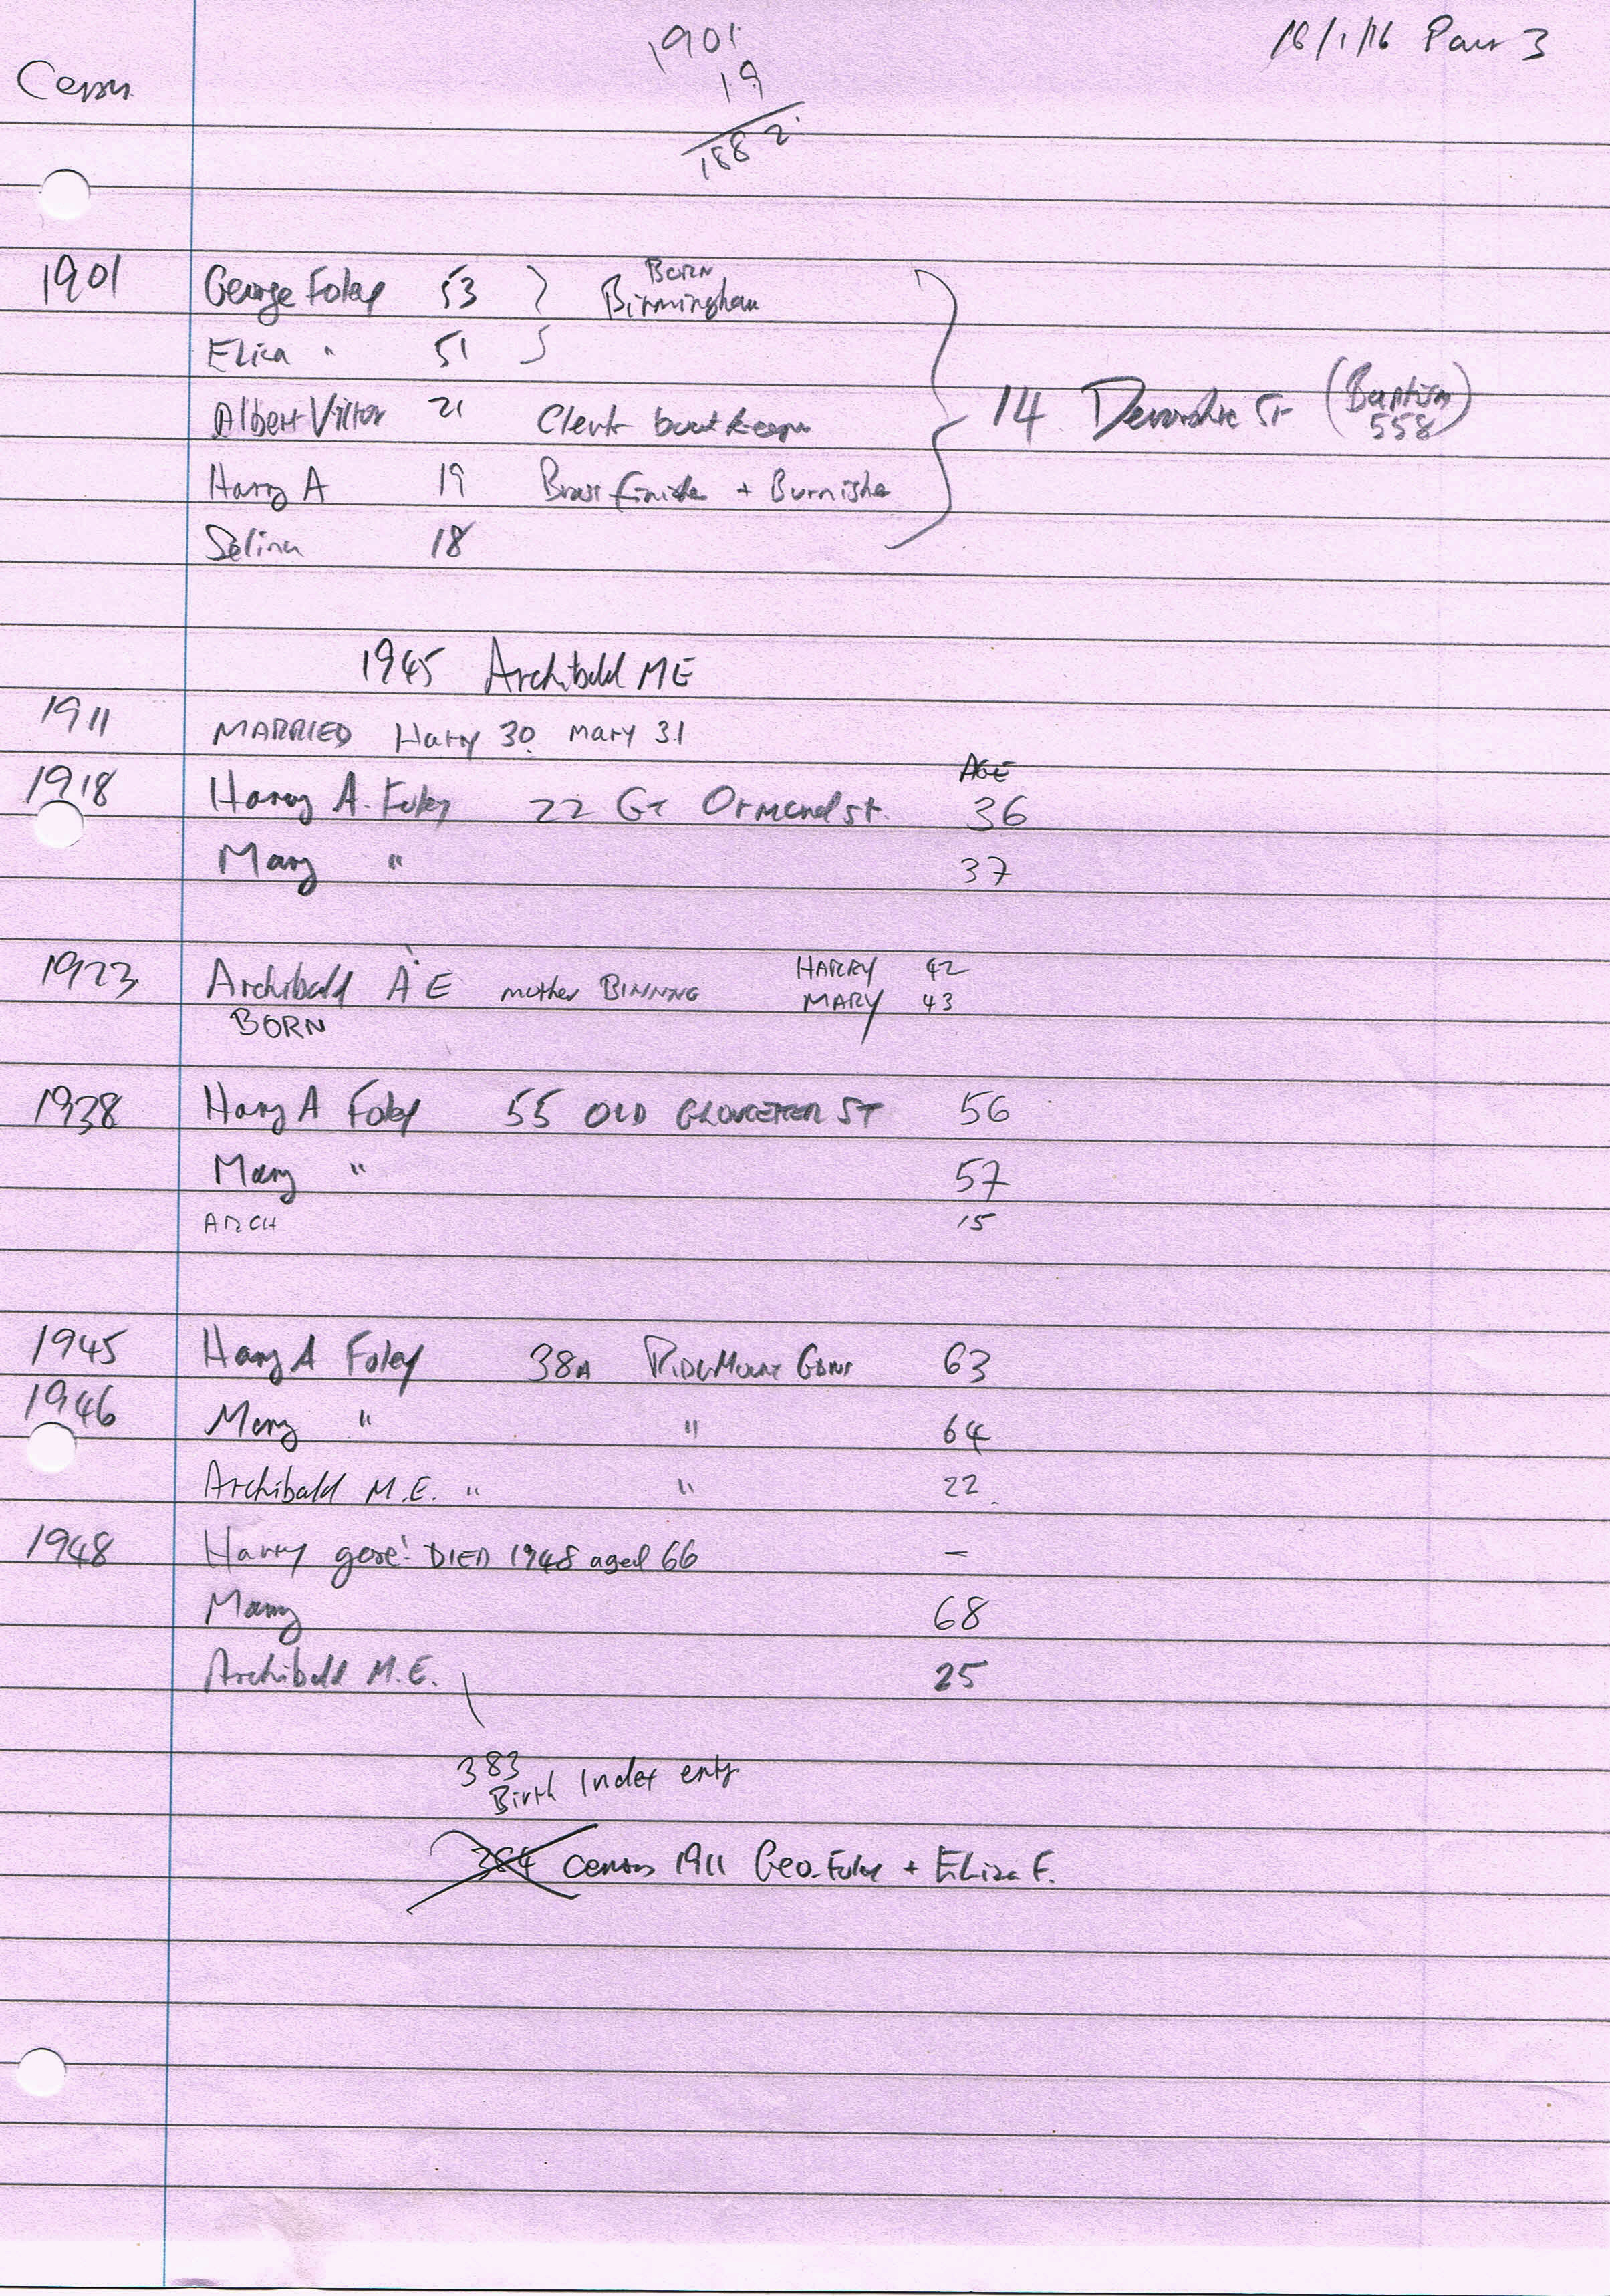 1901
18/1/16 Part 3
19
Census
1882
1901 George Foley 53 } Born Birmingham
Eliza " 51
Albert Victor 21 Clerk book keeper 14 Devonshire St (Baptism 558)
Harry A 19 Brass finisher + Burnisher
Selina 18
1945 Archibald ME
1911 MARRIED Harry 30 Mary 31
AGE
1918 Harry A. Foley 22 Gt Ormond st. 36
Mary " 37
1923 Archibald A E mother BINNING HARRY 42
BORN MARY 43
1938 Harry A Foley 55 OLD GLOUCESTER ST 56
Mary " 57
ARCH 15
1945 Harry A Foley 38A RIDGMOUNT GDNS 63
1946 Mary " " 64
Archibald M.E. " " 22
1948 Harry gone! DIED 1948 aged 66 –
Mary 68
Archibald M.E. 25
383
Birth Index entry
384 census 1911 Geo. Foley + Eliza F.